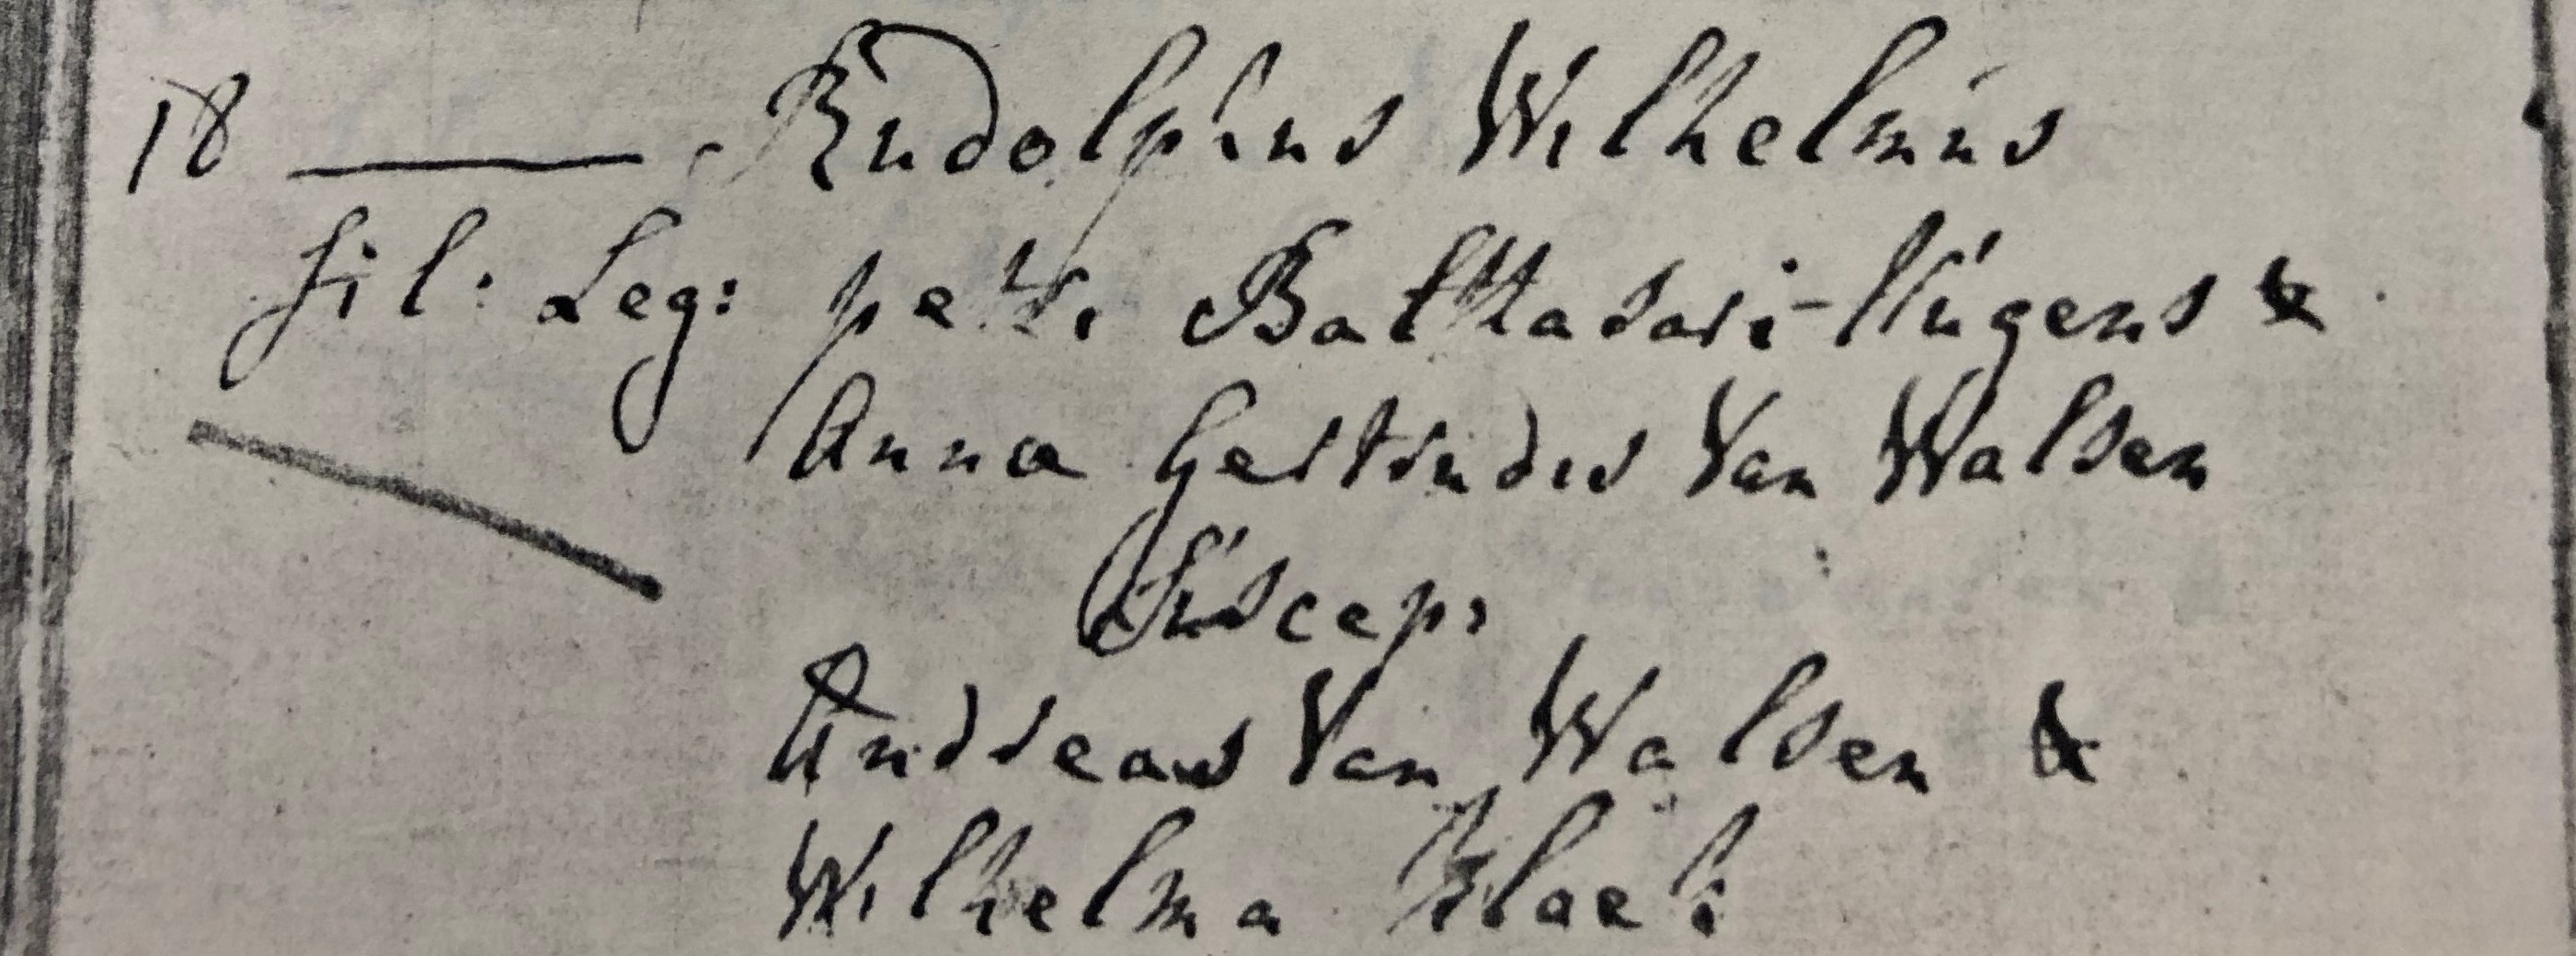 18 ——— Rudolphus Wilhelmus
fil: Leg: petri Balttasari Núgens &
Anna Gertrudis Van Walsen
Súscep:
Andreas Van Walsen &
Wilhelma